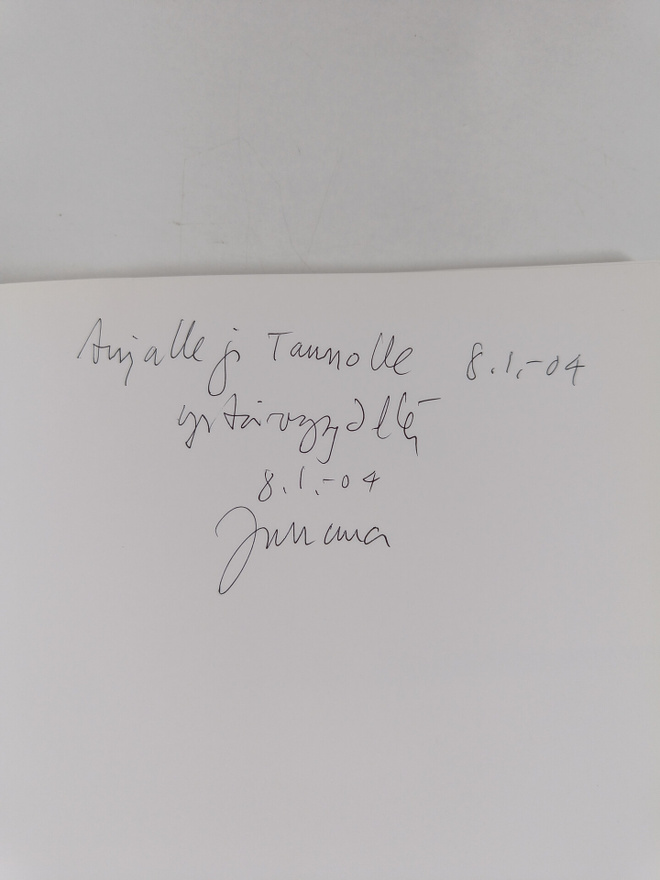 Anjalle ja Taunolle 8.1.-04
ystävyydellä
8.1.-04
Juhana